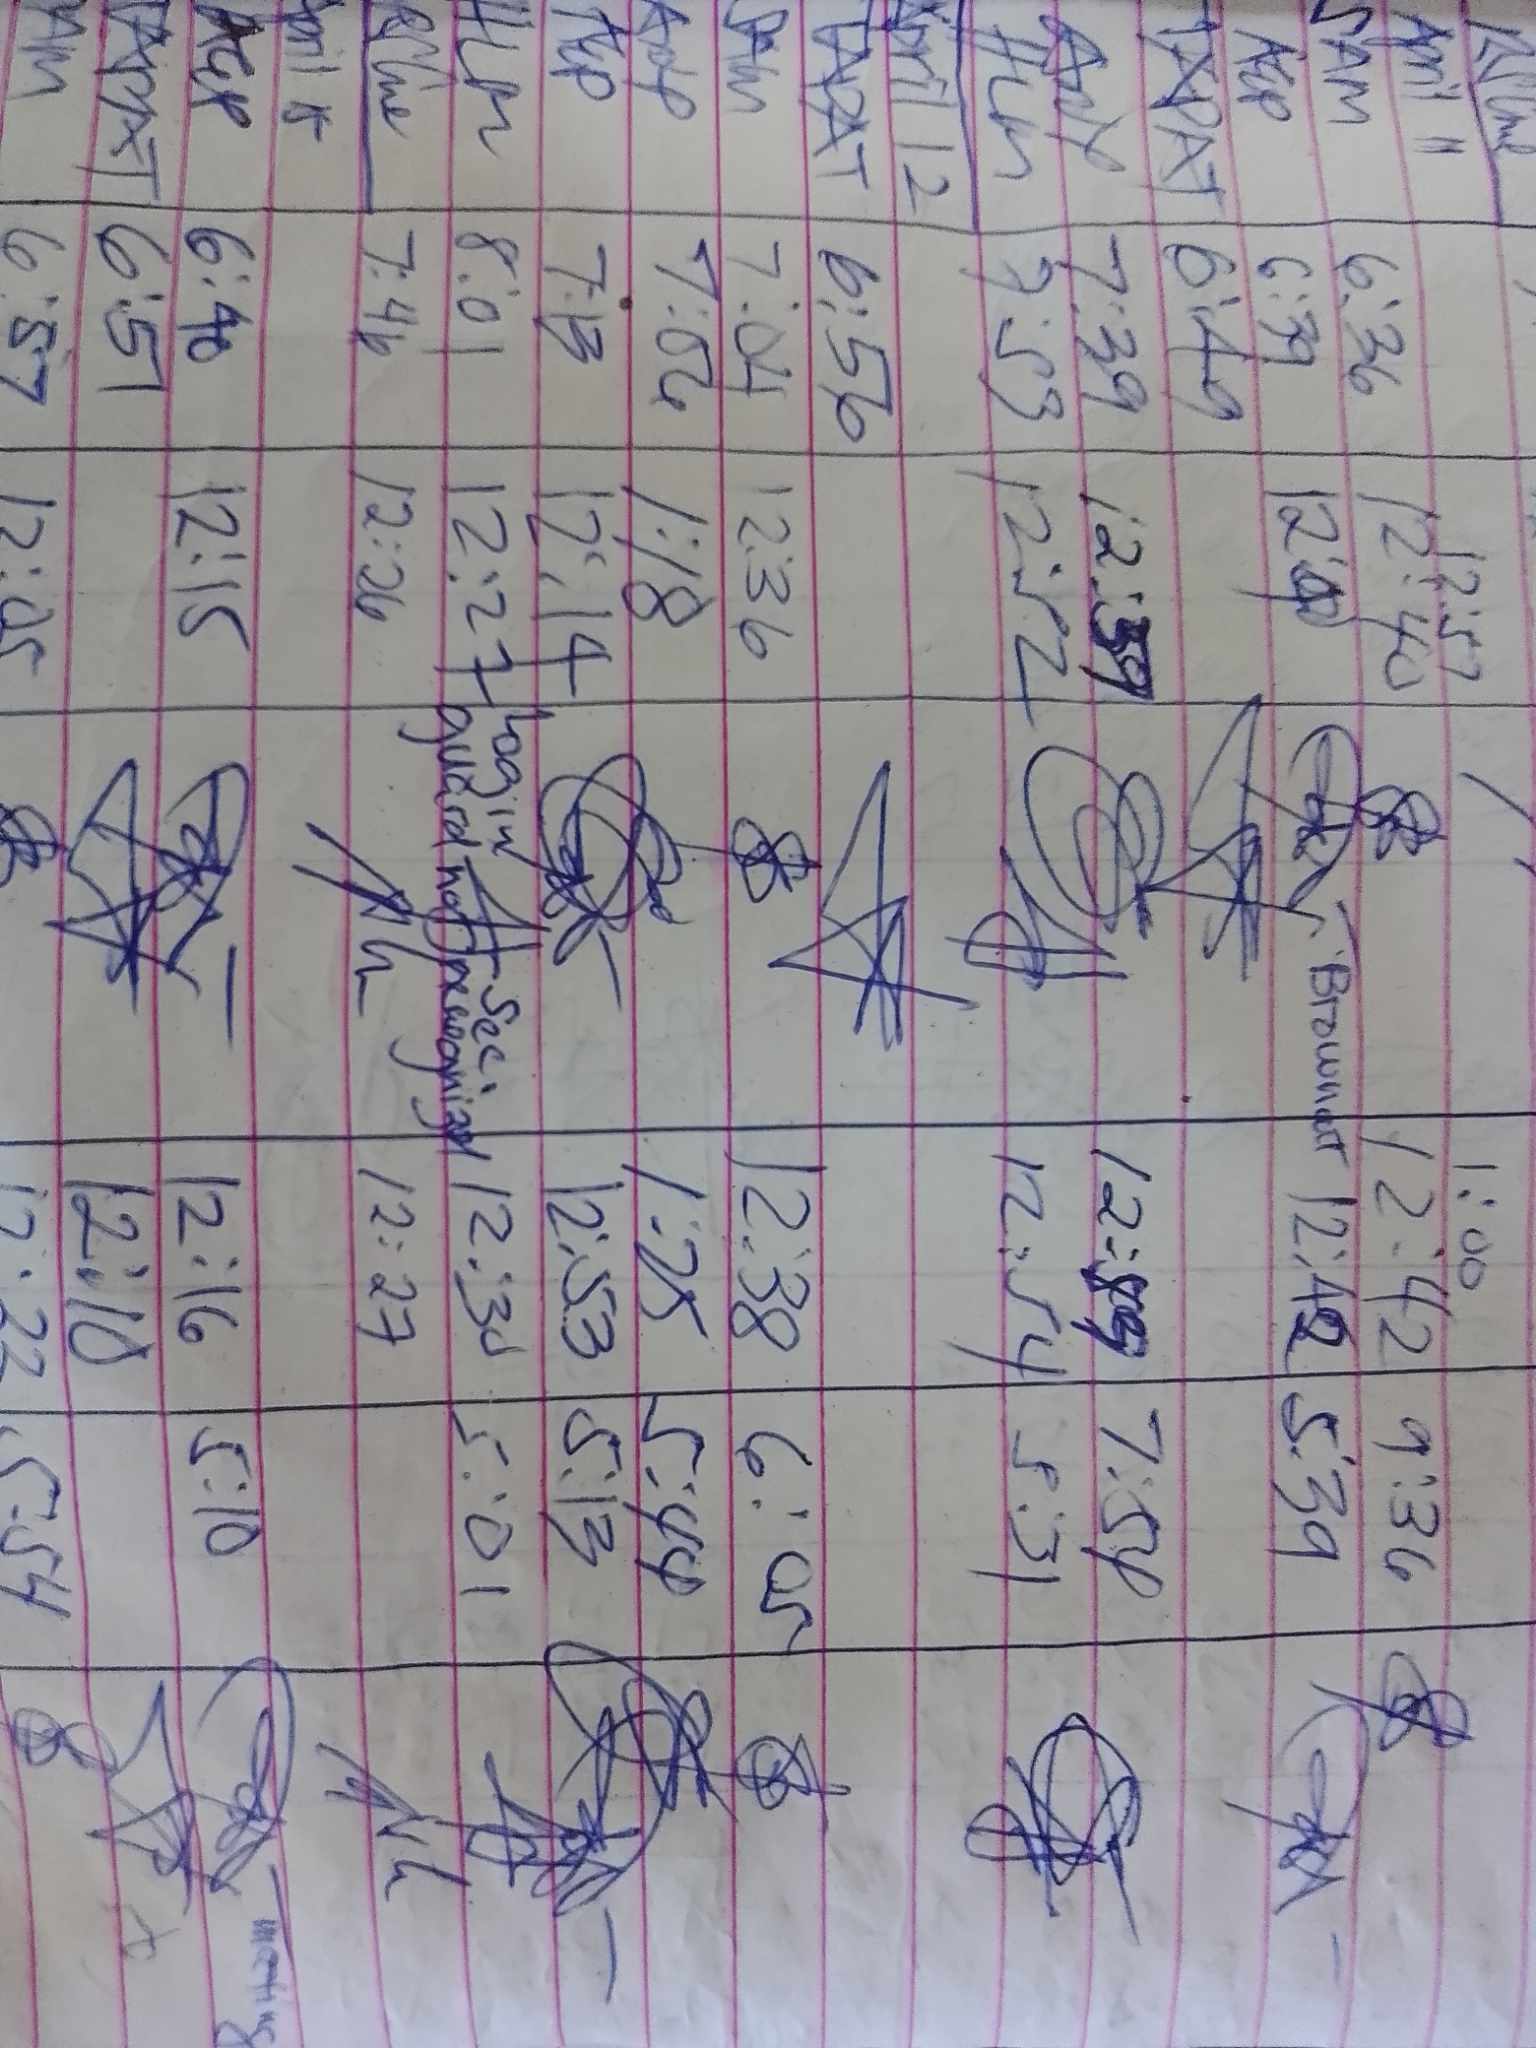 12:57 1:00
April 11
SAM 6:36 12:40 12:42 9:36
AKP 6:39 Brownout 12:42 5:39
TAXPAT 6:49
7:39 12:39 7:54
HLM 7:53 12:52 12:54 5:31
April 12
TAXPAT 6:56
SAM 7:04 12:36 12:38 6:05
7:06 1:18 1:25 5:44
AKP 7:13 12:14 12:53 5:13
HLM 8:01 12:27 Login Sec. 12:30 5:01
guard not
7:46 12:26 12:27
AKP 6:46 12:15 12:16 5:10 meeting
TAXPAT 6:51 12:10
SAM 6:57 12:05 12:22 5:54